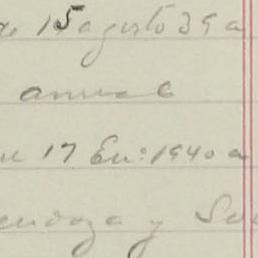 15 agosto 39 a
anual
17 En: 1940 a
endoza y So